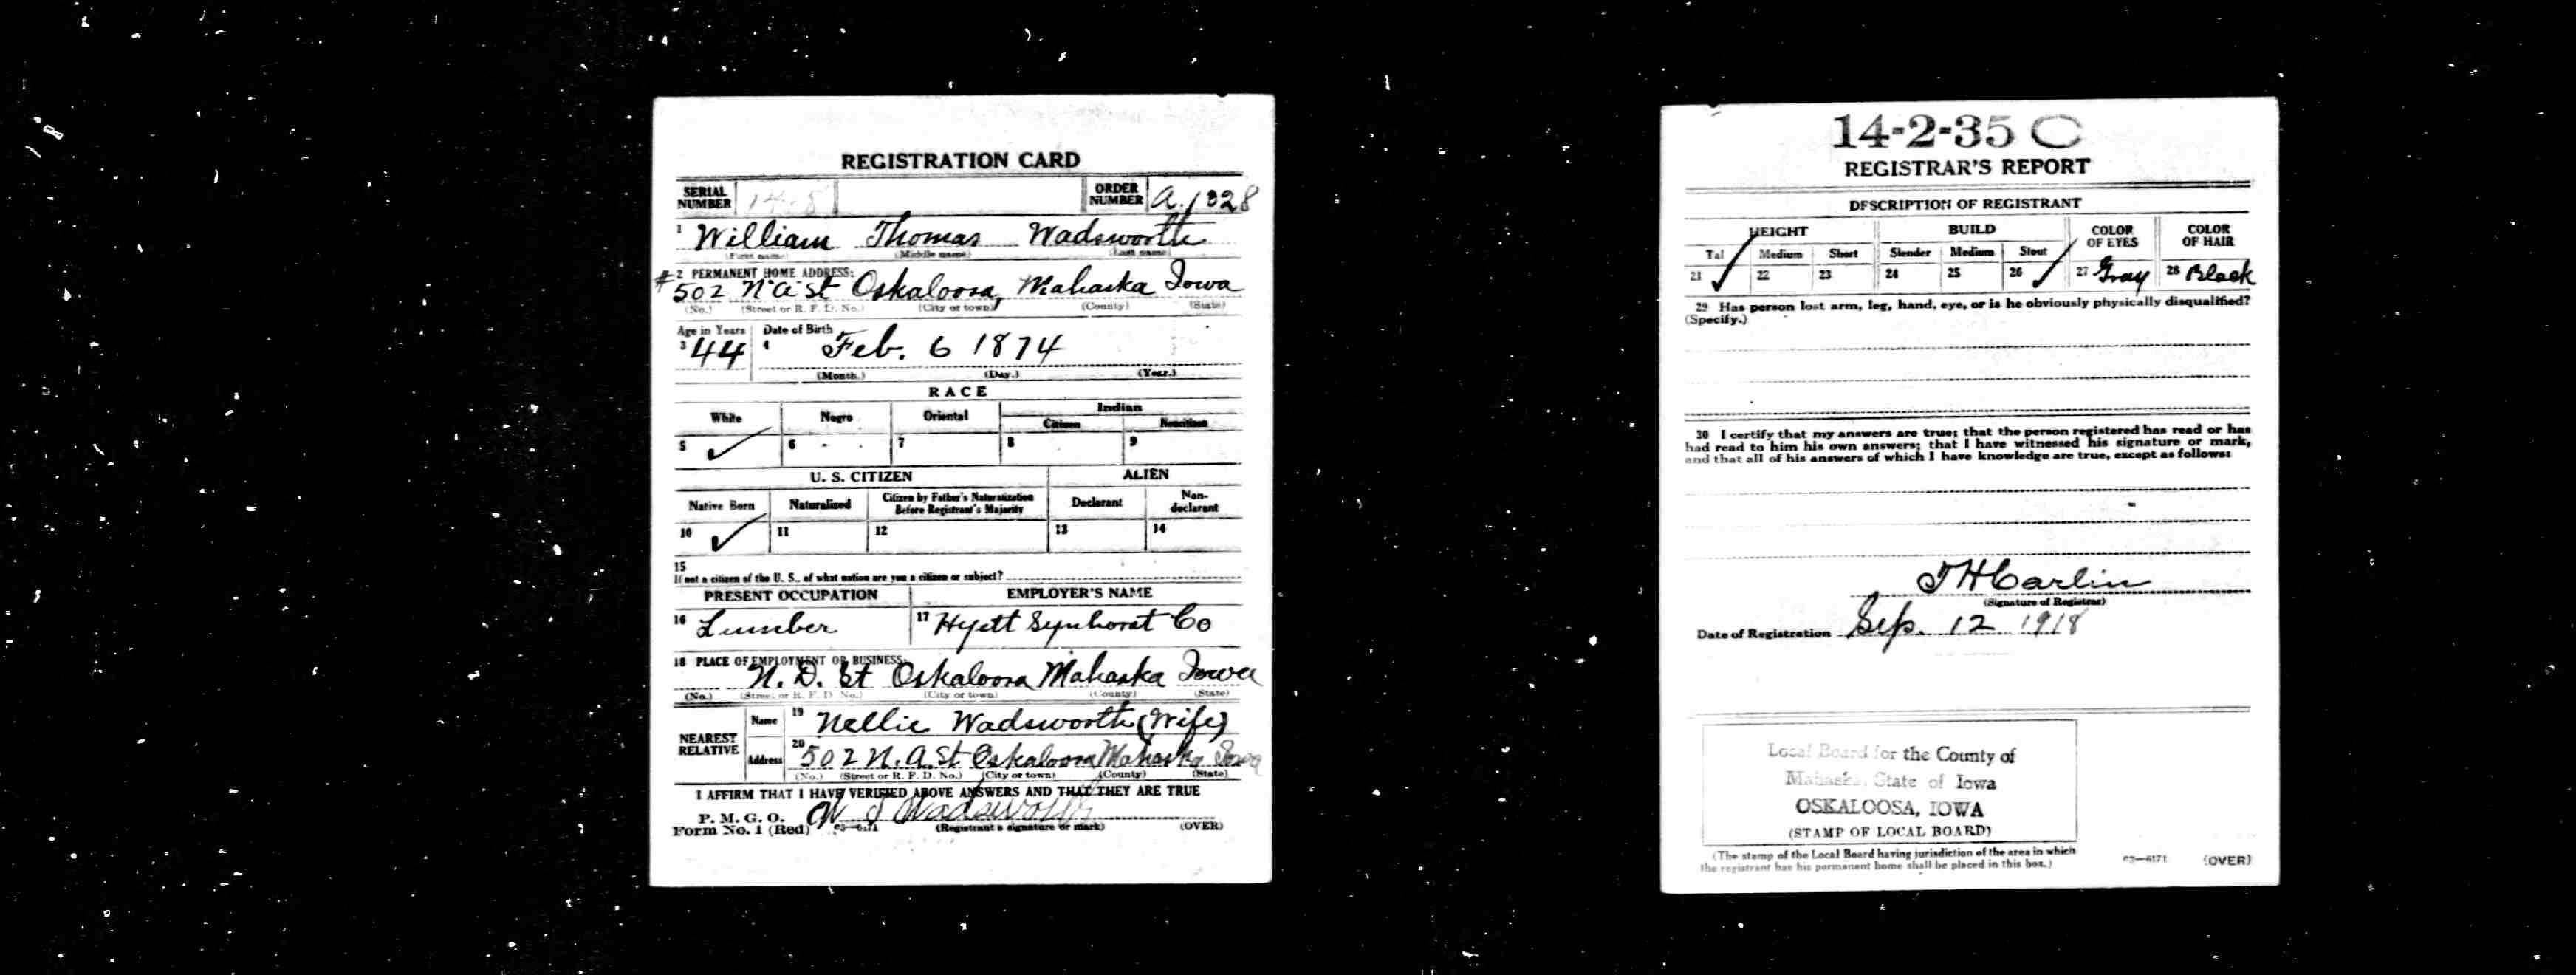 REGISTRATION CARD
SERIAL NUMBER ORDER NUMBER A. 1328
1 William Thomas Wadsworth
(First name) (Middle name) (Last name)
# 2 PERMANENT HOME ADDRESS:
502 N A St Oskaloosa, Mahaska Iowa
(No.) (Street or R. F. D. No.) (City or town) (County) (State)
Age in Years Date of Birth
3 44 4 Feb. 6 1874
(Month.) (Day.) (Year.)
RACE
White Negro Oriental Indian
Citizen Noncitizen
5 ✓ 6 7 8 9
U. S. CITIZEN ALIEN
Native Born Naturalized Citizen by Father's Naturalization Before Registrant's Majority Declarant Non-declarant
10 ✓ 11 12 13 14
15
If not a citizen of the U. S., of what nation are you a citizen or subject?
PRESENT OCCUPATION EMPLOYER'S NAME
16 Lumber 17 Hyett Synhorst Co
18 PLACE OF EMPLOYMENT OR BUSINESS:
N. D. St Oskaloosa Mahaska Iowa
(No.) (Street or R. F. D. No.) (City or town) (County) (State)
NEAREST RELATIVE
Name 19 Nellie Wadsworth (Wife)
Address 20 502 N. A. St Oskaloosa Mahaska Iowa
(No.) (Street or R. F. D. No.) (City or town) (County) (State)
I AFFIRM THAT I HAVE VERIFIED ABOVE ANSWERS AND THAT THEY ARE TRUE
P. M. G. O.
Form No. 1 (Red) 03—6171 W T Wadsworth
(Registrant's signature or mark) (OVER)
14-2-35 C
REGISTRAR'S REPORT
DESCRIPTION OF REGISTRANT
HEIGHT BUILD COLOR OF EYES COLOR OF HAIR
Tall Medium Short Slender Medium Stout
21 ✓ 22 23 24 25 26 ✓ 27 Gray 28 Black
29 Has person lost arm, leg, hand, eye, or is he obviously physically disqualified?
(Specify.)
30 I certify that my answers are true; that the person registered has read or has
had read to him his own answers; that I have witnessed his signature or mark,
and that all of his answers of which I have knowledge are true, except as follows:
T H Carlin
(Signature of Registrar)
Date of Registration Sep. 12 1918
Local Board for the County of
Mahaska, State of Iowa
OSKALOOSA, IOWA
(STAMP OF LOCAL BOARD)
(The stamp of the Local Board having jurisdiction of the area in which
the registrant has his permanent home shall be placed in this box.)
03—6171 (OVER)